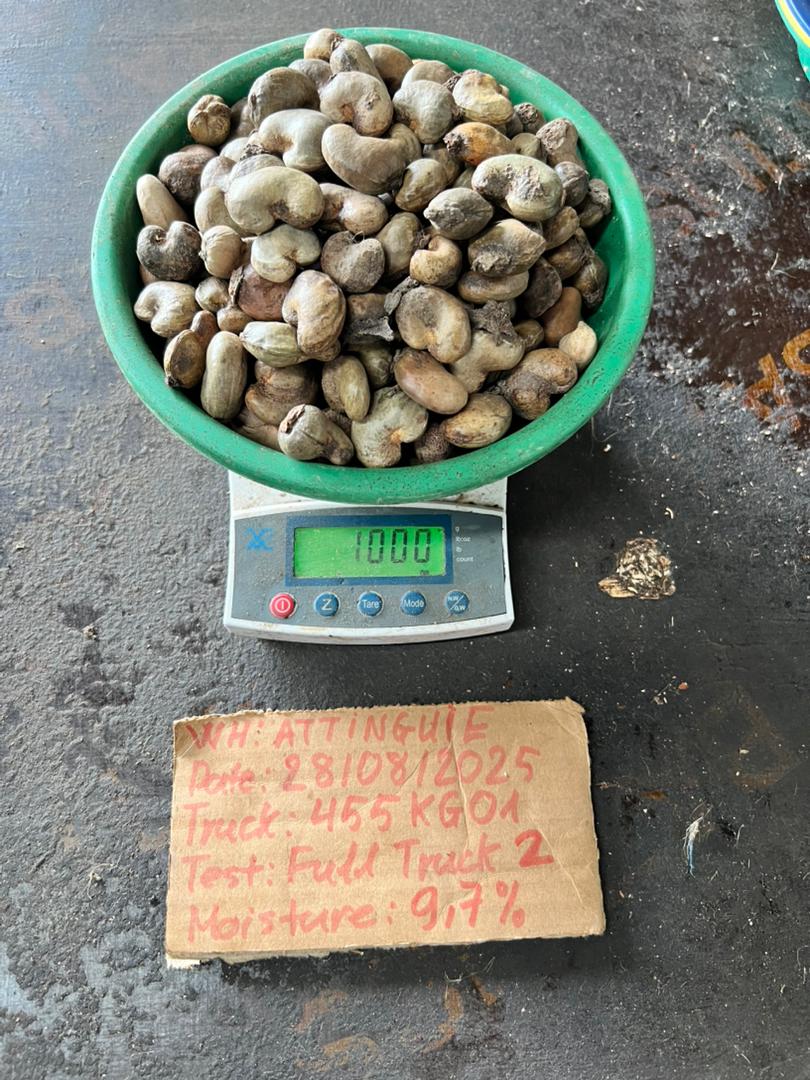 1000
g
lb:oz
lb
count
Z
Tare
Mode
N.W/G.W
WH: ATTINGUIE
Date: 28/08/2025
Truck: 455KG01
Test: Full Truck 2
Moisture: 9,7%